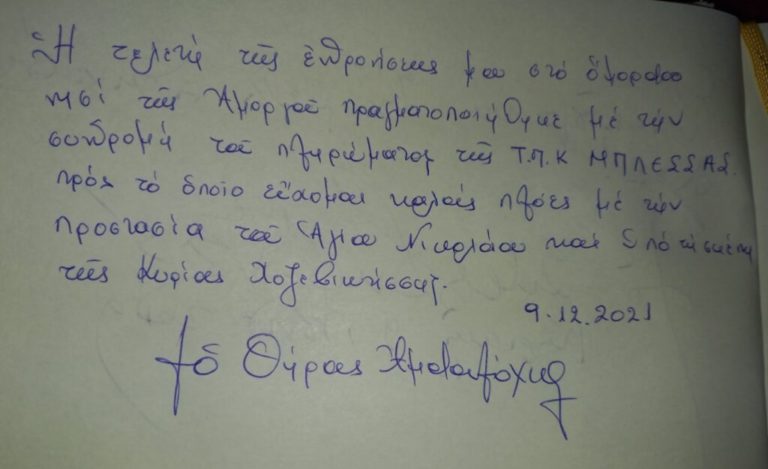 Ἡ τελετή τῆς ἐνθρονίσεως μου στό ὄμορφο
νησί τῆς Ἀμοργοῦ πραγματοποιήθηκε μέ τήν
συνδρομή τοῦ πληρώματος τῆς Τ.Π.Κ ΜΠΛΕΣΣΑΣ.
πρός τό ὁποῖο εὔχομαι καλούς πλόες μέ τήν
προστασία τοῦ Ἁγίου Νικολάου καί ὑπό τή σκέπη
τῆς Κυρίας Χοζοβιωτίσσης.
9.12.2021
†ὁ Θήρας Ἀμφιλόχιος